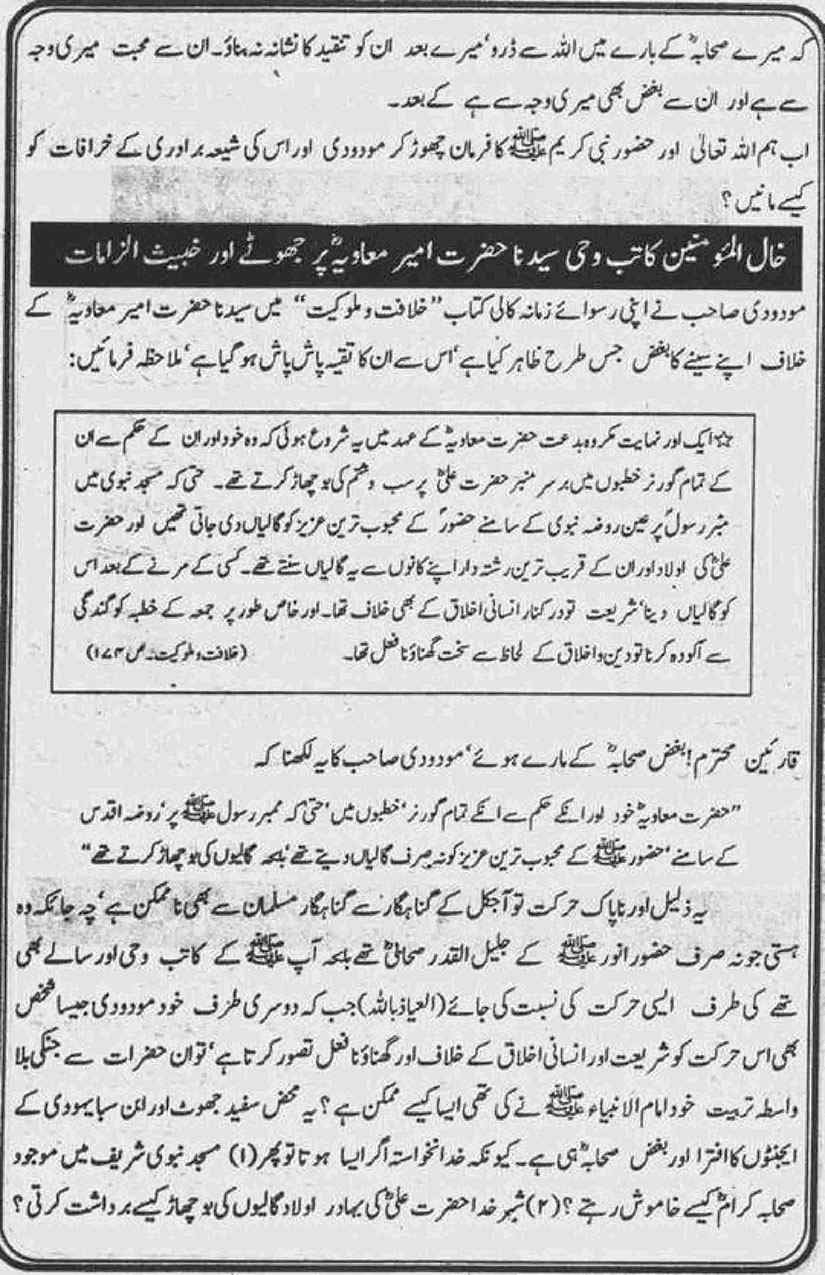 کہ میرے صحابہؓ کے بارے میں اللہ سے ڈرو‘ میرے بعد ان کو تنقید کا نشانہ نہ بناؤ۔ ان سے محبت میری وجہ
سے ہے اور ان سے بغض بھی میری وجہ سے ہے کے بعد۔
اب ہم اللہ تعالیٰ اور حضور نبی کریم ﷺ کا فرمان چھوڑ کر مودودی اور اس کی شیعہ برادری کے خرافات کو
کیسے مانیں؟
خال المؤمنین کاتب وحی سیدنا حضرت امیر معاویہؓ پر جھوٹے اور خبیث الزامات
مودودی صاحب نے اپنی رسوائے زمانہ کالی کتاب ”خلافت و ملوکیت“ میں سیدنا حضرت امیر معاویہؓ کے
خلاف اپنے سینے کا بغض جس طرح ظاہر کیا ہے‘ اس سے ان کا تقیہ پاش پاش ہو گیا ہے‘ ملاحظہ فرمائیں:
☆ ایک اور نہایت مکروہ بدعت حضرت معاویہؓ کے عہد میں یہ شروع ہوئی کہ وہ خود اور ان کے حکم سے ان
کے تمام گورنر خطبوں میں برسر منبر حضرت علیؓ پر سب و شتم کی بوچھاڑ کرتے تھے۔ حتیٰ کہ مسجد نبوی میں
منبر رسولؐ پر عین روضہ نبوی کے سامنے حضورؐ کے محبوب ترین عزیز کو گالیاں دی جاتی تھیں اور حضرت
علیؓ کی اولاد اور ان کے قریب ترین رشتہ دار اپنے کانوں سے یہ گالیاں سنتے تھے۔ کسی کے مرنے کے بعد اس
کو گالیاں دینا‘ شریعت تو درکنار انسانی اخلاق کے بھی خلاف تھا۔ اور خاص طور پر جمعہ کے خطبہ کو گندگی
سے آلودہ کرنا تو دین و اخلاق کے لحاظ سے سخت گھناؤنا فعل تھا۔ (خلافت و ملوکیت۔ ص ۱۷۴)
قارئین محترم! بغض صحابہؓ کے مارے ہوئے‘ مودودی صاحب کا یہ لکھنا کہ
”حضرت معاویہؓ خود اور انکے حکم سے انکے تمام گورنر‘ خطبوں میں‘ حتیٰ کہ ممبر رسول ﷺ پر‘ روضہ اقدس
کے سامنے‘ حضور ﷺ کے محبوب ترین عزیز کو نہ صرف گالیاں دیتے تھے‘ بلکہ گالیوں کی بوچھاڑ کرتے تھے“
یہ ذلیل اور ناپاک حرکت تو آجکل کے گناہگار سے گناہگار مسلمان سے بھی ناممکن ہے‘ چہ جائکہ وہ
ہستی جو نہ صرف حضور انور ﷺ کے جلیل القدر صحابیؓ تھے بلکہ آپ ﷺ کے کاتب وحی اور سالے بھی
تھے کی طرف ایسی حرکت کی نسبت کی جائے (العیاذ باللہ) جب کہ دوسری طرف خود مودودی جیسا شخص
بھی اس حرکت کو شریعت اور انسانی اخلاق کے خلاف اور گھناؤنا فعل تصور کرتا ہے‘ تو ان حضرات سے جنکی بلا
واسطہ تربیت خود امام الانبیاء ﷺ نے کی تھی ایسا کیسے ممکن ہے؟ یہ محض سفید جھوٹ اور ابن سبا یہودی کے
ایجنٹوں کا افترا اور بغض صحابہؓ ہی ہے۔ کیونکہ خدانخواستہ اگر ایسا ہوتا تو پھر (۱) مسجد نبوی شریف میں موجود
صحابہ کرامؓ کیسے خاموش رہتے؟ (۲) شیر خدا حضرت علیؓ کی بہادر اولاد گالیوں کی بوچھاڑ کیسے برداشت کرتی؟